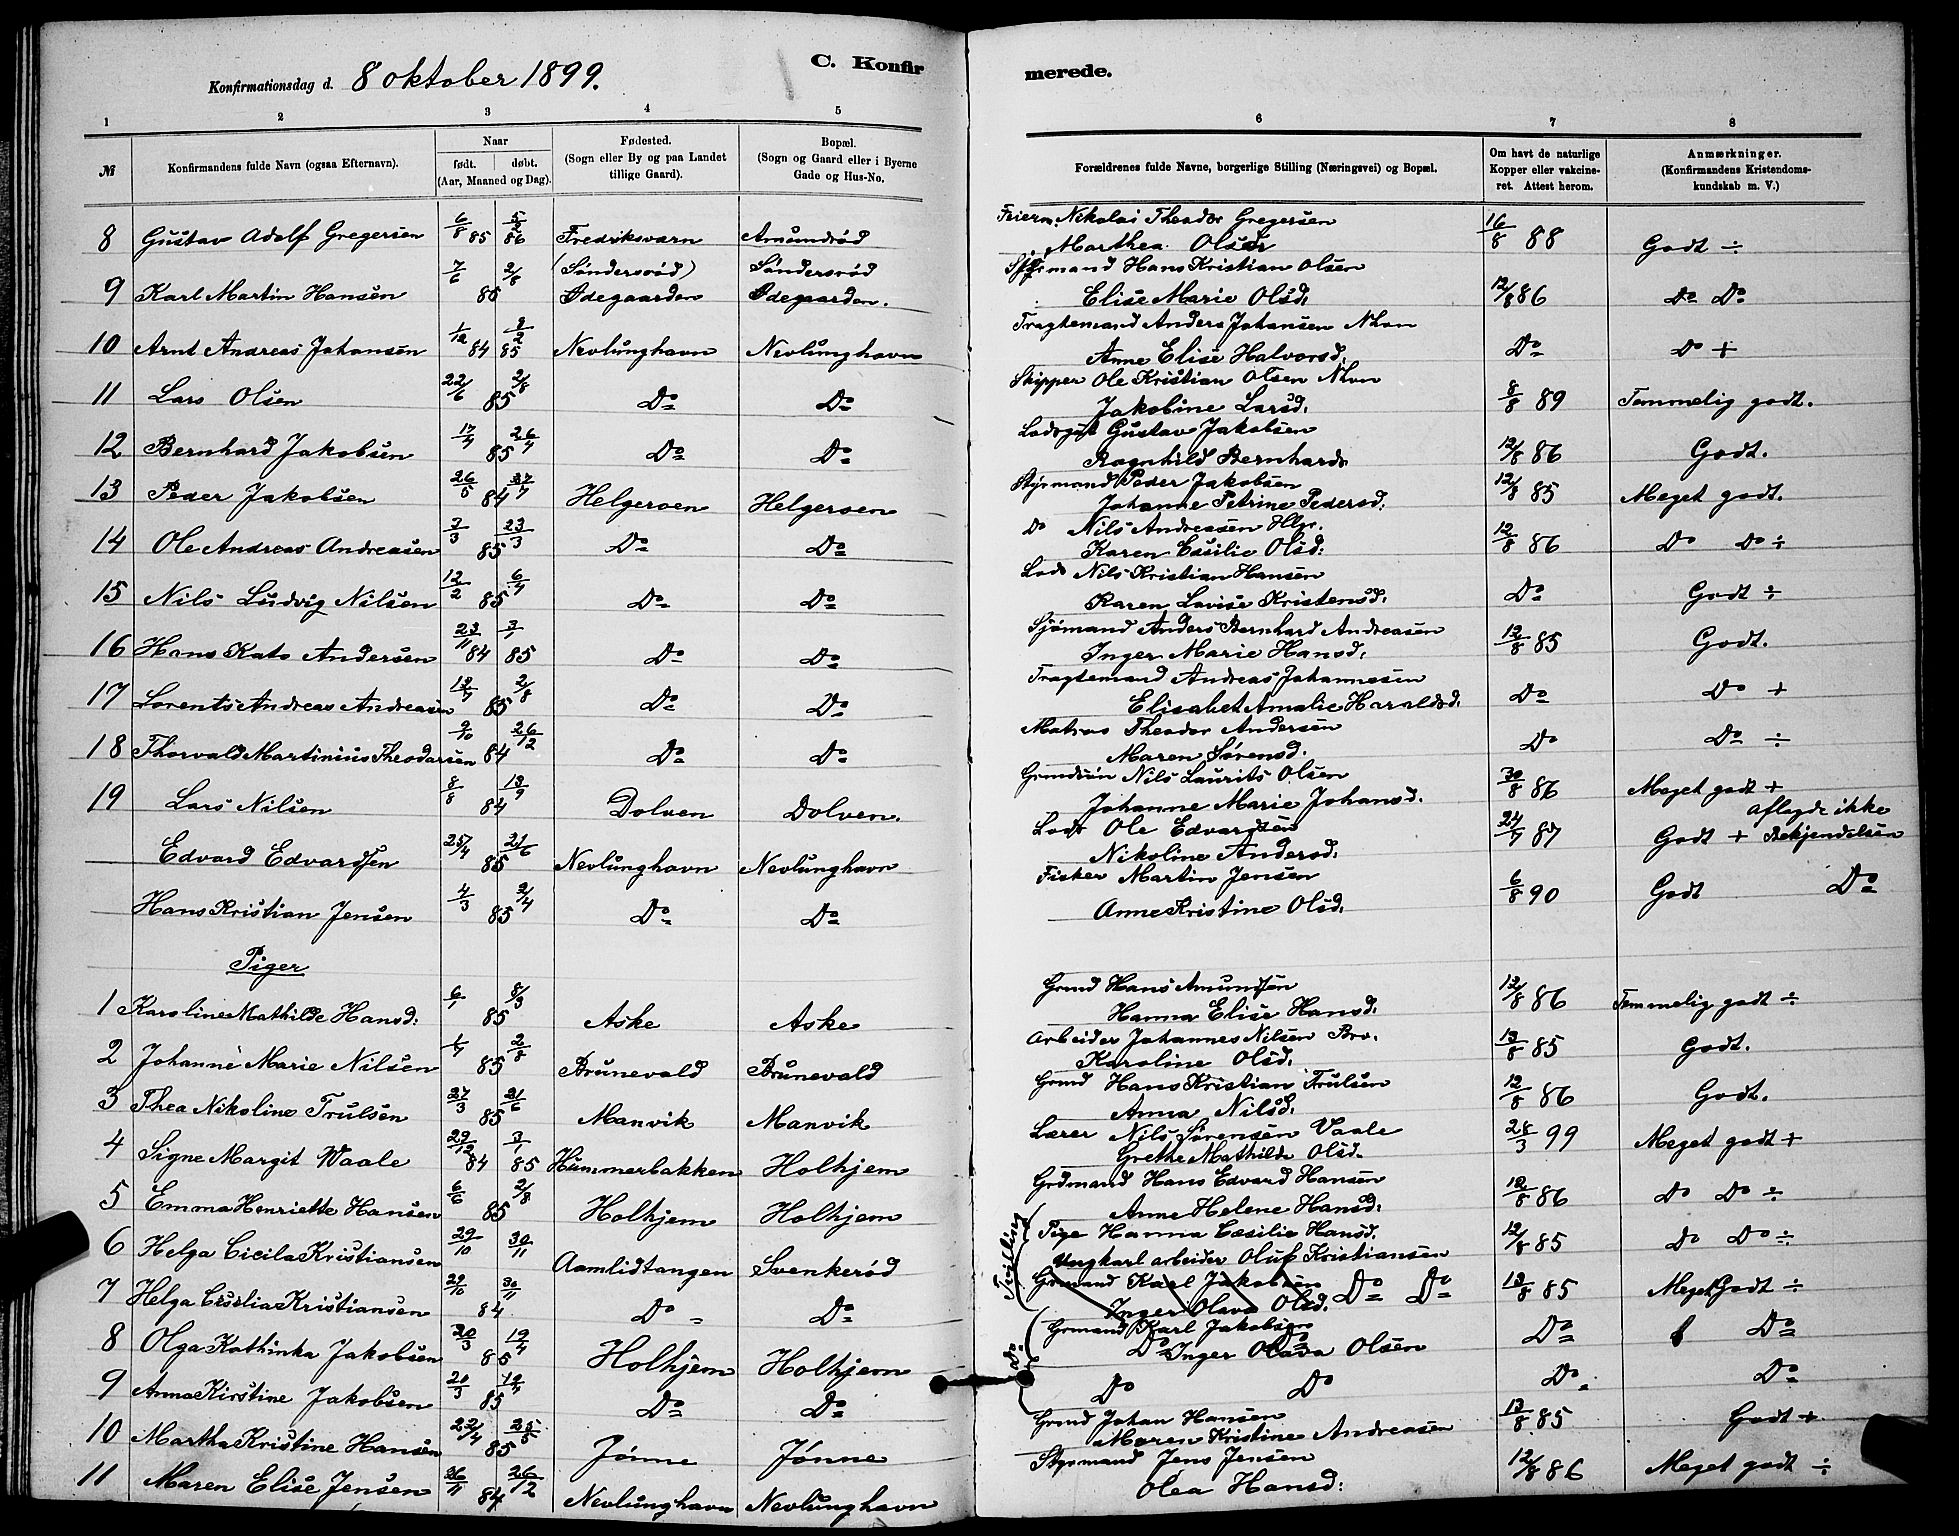 Konfirmationsdag d. 8 oktober 1899. C. Konfirmerede.
1 2 3 4 5 6 7 8
№ Konfirmandens fulde Navn (ogsaa Efternavn). Naar født. døbt. (Aar, Maaned og Dag). Fødested. (Sogn eller By og paa Landet tillige Gaard). Bopæl. (Sogn og Gaard eller i Byerne Gade og Hus-No. Forældrenes fulde Navne, borgerlige Stilling (Næringsvei) og Bopæl. Om havt de naturlige Kopper eller vakcineret. Attest herom. Anmærkninger. (Konfirmandens Kristendomskundskab m. V.)
8 Gustav Adolf Gregersen 6/8 85 5/2 86 Fredriksværn Amundrød Nikolai Theodor Gregersen 16/8 88 Godt ÷
Marthea Olsd
9 Karl Martin Hansen 7/6 2/8 85 (Søndersrød) Ødegaarden Søndersrød Ødegaarden. Sjømand Hans Kristian Olsen 12/8 86 Do Do
Elise Marie Olsd.
10 Arnt Andreas Johansen 1/12 84 2/2 85 Nevlunghavn Nevlunghavn Fragtemand Anders Johansen Nhvn Do Do +
Anne Elise Halvorsd.
11 Lars Olsen 22/6 2/8 85 Do Do Skipper Ole Kristian Olsen Nhvn 8/8 89 Temmelig godt.
Jakobine Larsd.
12 Bernhard Jakobsen 17/4 26/4 85 Do Do Gustav Jakobsen 12/8 86 Godt.
Ragnhild Bernhards
13 Peder Jakobsen 26/5 27/7 84 Helgeroen Helgeroen Styrmand Peder Jakobsen 12/8 85 Meget godt.
Johanne Petrine Pedersd.
14 Ole Andreas Andreasen 3/3 23/3 85 Do Do Do Nils Andreasen Hlgr. 12/8 86 Do Do ÷
Karen Cesilie Olsd:
15 Nils Ludvig Nilsen 12/2 6/4 85 Do Do Lods Nils Kristian Hansen Do Godt ÷
Karen Lovise Kristensd.
16 Hans Kato Andersen 23/11 84 3/1 85 Do Do Sjømand Anders Bernhard Andreasen 12/8 85 Godt.
Inger Marie Hansd.
17 Lorents Andreas Andreasen 12/7 2/8 85 Do Do Fragtemand Andreas Johannesen Do Do +
Elisabet Amalie Haraldsd.
18 Thorvald Martinius Theodorsen 9/10 26/12 84 Do Do Matros Theodor Andersen Do Do ÷
Maren Sørensd.
19 Lars Nilsen 8/8 13/9 84 Dolven Dolven. Nils Laurits Olsen 30/8 86 Meget godt +
Johanne Marie Johansd.
Edvard Edvardsen 25/4 21/6 85 Nevlunghavn Nevlunghavn Lods Ole Edvardsen 24/7 87 Godt + aflagde ikke Bekjendelsen
Nikoline Andersd.
Hans Kristian Jensen 4/3 2/4 85 Do Do Fisker Martin Jensen 6/8 90 Godt Do
Anne Kristine Olsd.
Piger
1 Karoline Mathilde Hansd: 6/1 8/3 85 Aske Aske Grmd Hans Amundsen 12/8 86 Temmelig godt ÷
Hanna Elise Hansd.
2 Johanne Marie Nilsen 1/7 2/8 85 Brunevald Brunevald Arbeider Johannes Nilsen Brv. 13/8 85 Godt.
Karoline Olsd.
3 Thea Nikoline Trulsen 27/3 21/6 85 Manvik Manvik Grmd Hans Kristian Trulsen 12/8 86 Godt.
Anna Nilsd.
4 Signe Margit Waale 29/12 84 3/1 85 Hummerbakken Holhjem Lærer Nils Sørensen Vaale 28/3 99 Meget godt +
Grethe Mathilde Olsd.
5 Emma Henriette Hansen 6/6 2/8 85 Holhjem Holhjem Grdmand Hans Edvard Hansen 12/8 86 Do Do ÷
Anne Helene Hansd.
6 Helga Cicila Kristiansen 29/10 30/11 Aamlidtangen Svenkerød Tvilling Pige Hanna Cæsilie Hansd. 12/8 85 Do Do ÷
Ungkarl arbeider Oluf Kristiansen
7 Helga Cesilia Kristiansen 29/10 30/11 84 Do Do Grmand Karl Jakobsen Do Do 13/8 85 Meget Godt ÷
Inger Olava Olsd.
8 Olga Kathinka Jakobsen 20/3 19/4 85 Holhjem Holhjem Do Grmand Karl Jakobsen Do Do
Do Inger Olava Olsen
9 Anna Kirstine Jakobsen 20/3 19/4 85 Do Do Do Do Do Do
10 Martha Kristine Hansen 22/4 25/5 85 Jønne Jønne Grmd Johan Hansen 13/8 85 Godt +
Maren Kristine Andreasen
11 Maren Elise Jensen 26/11 26/12 84 Nevlunghavn Nevlunghavn Styrmand Jens Jensen 12/8 86 Meget godt ÷
Olea Hansd: